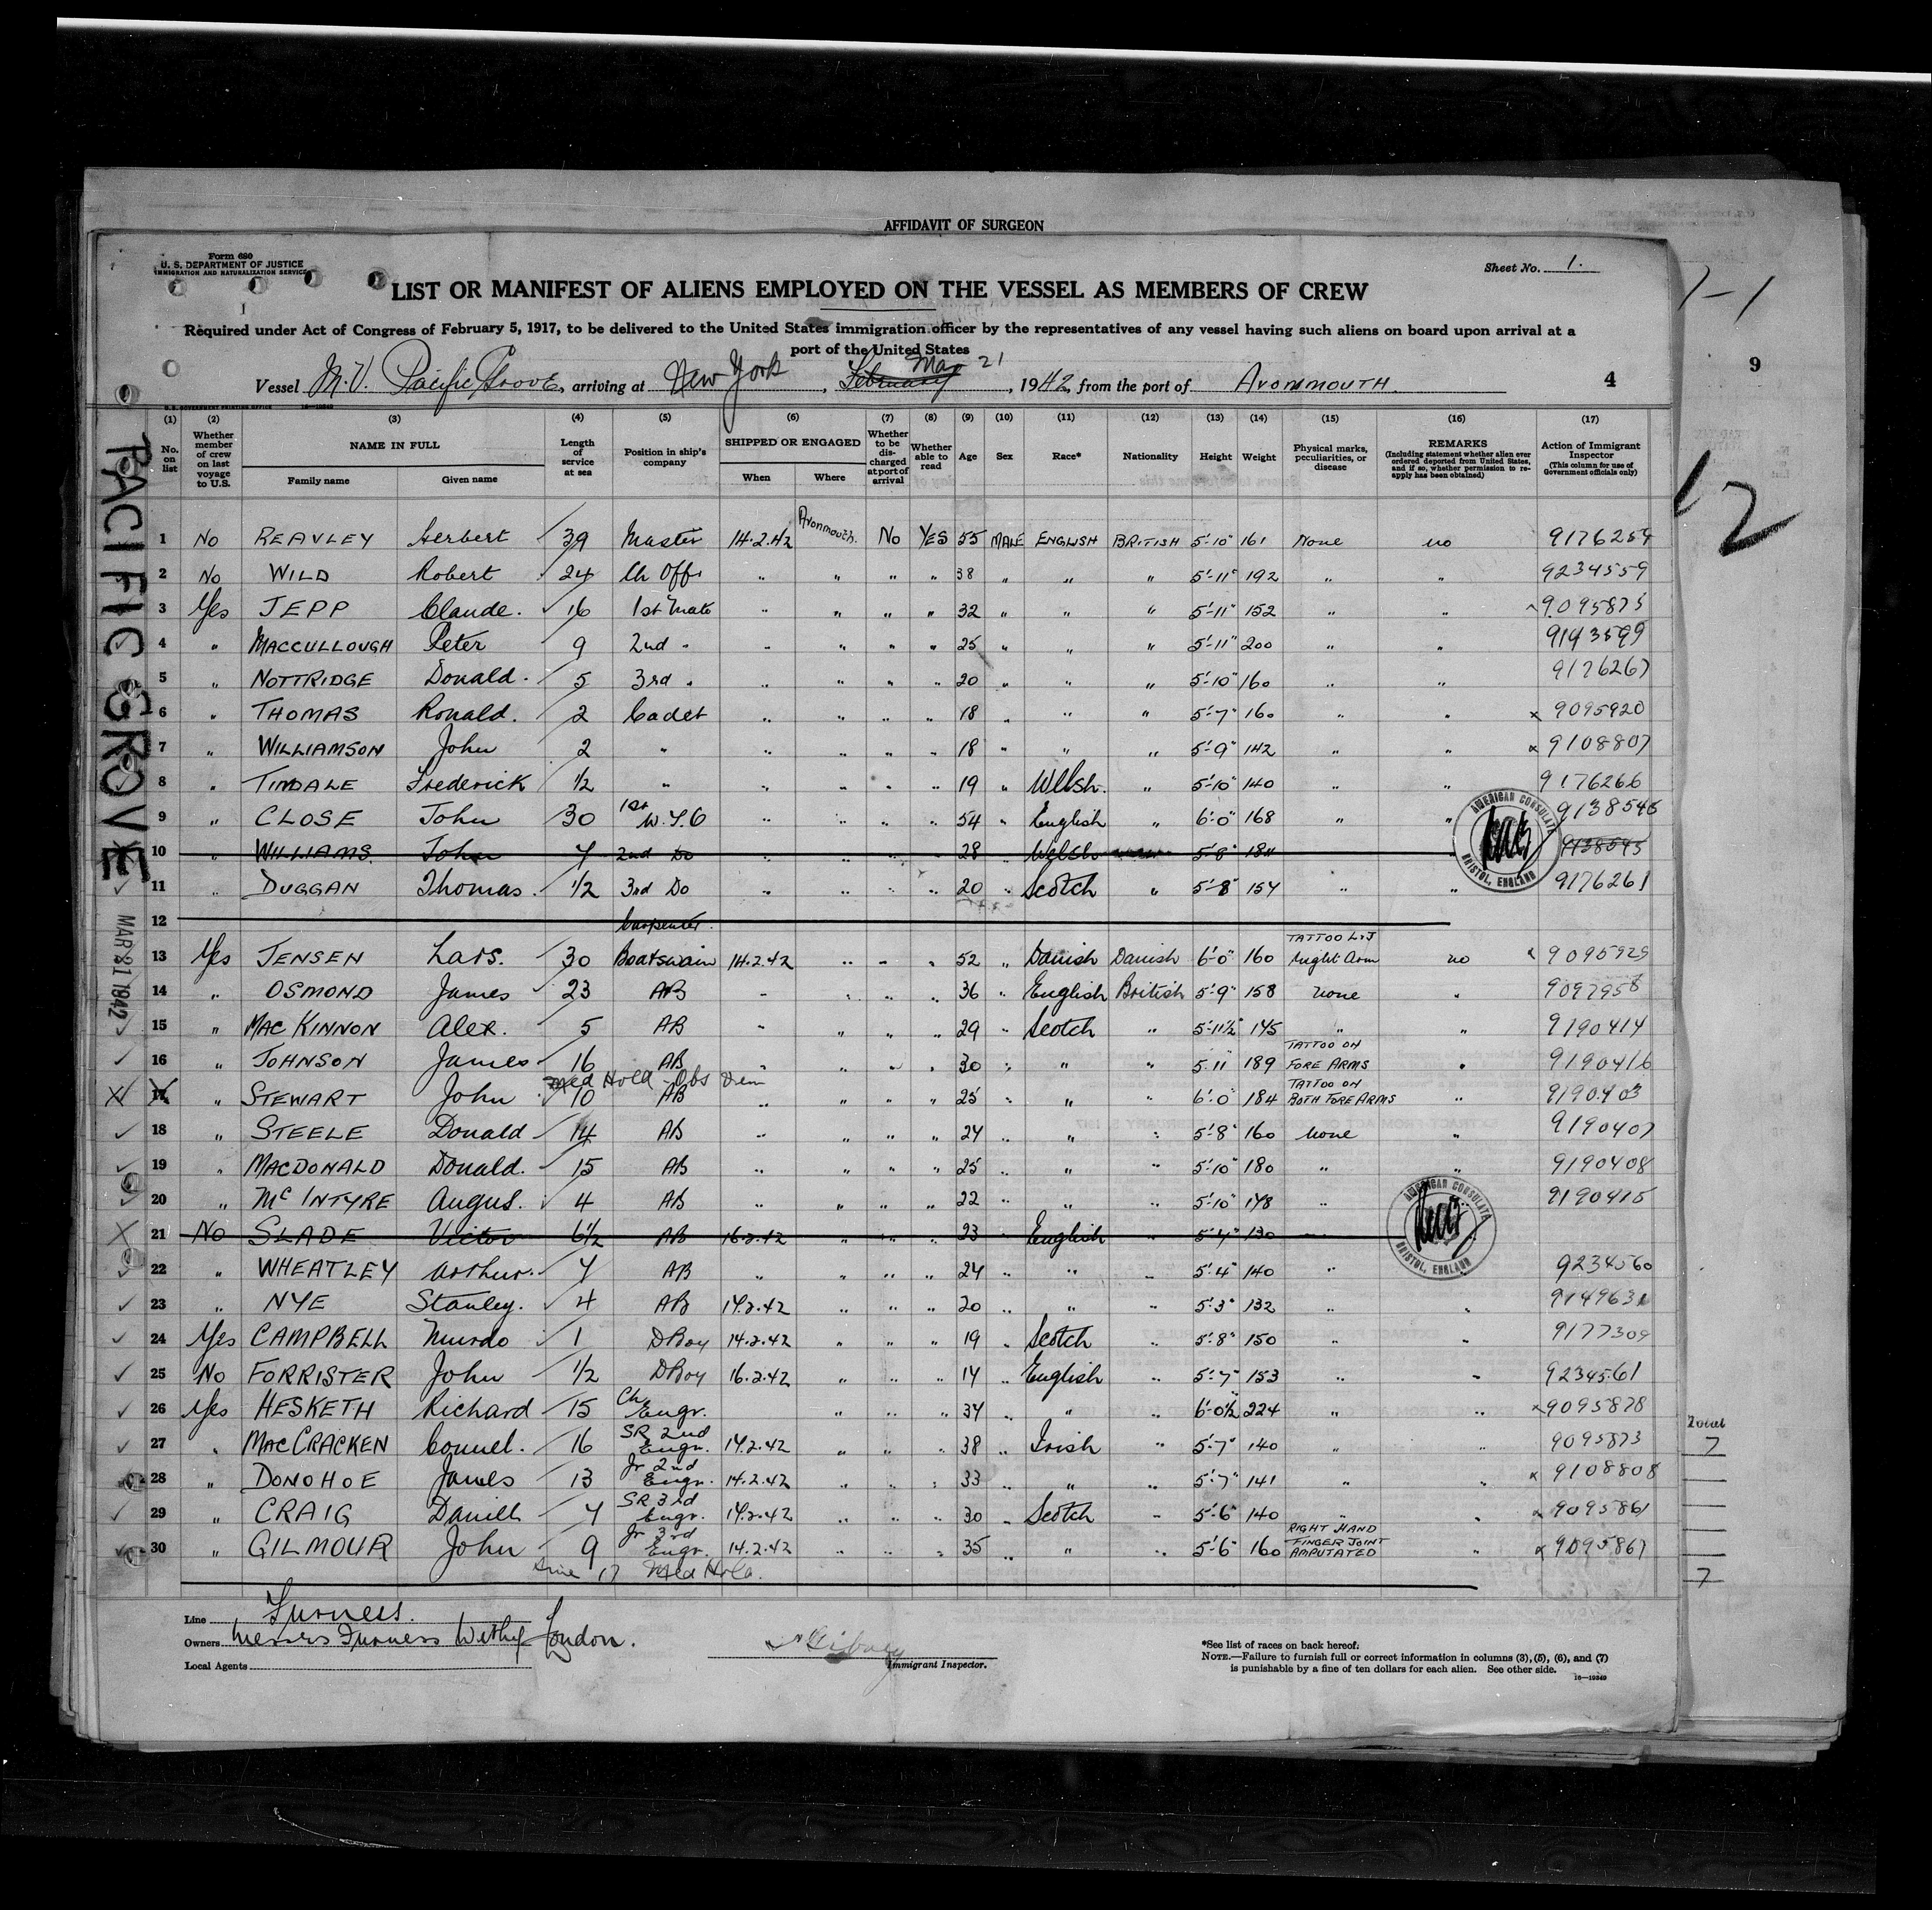 AFFIDAVIT OF SURGEON
Form 680
U. S. DEPARTMENT OF JUSTICE
IMMIGRATION AND NATURALIZATION SERVICE
Sheet No. 1.
LIST OR MANIFEST OF ALIENS EMPLOYED ON THE VESSEL AS MEMBERS OF CREW
1-1
Required under Act of Congress of February 5, 1917, to be delivered to the United States immigration officer by the representatives of any vessel having such aliens on board upon arrival at a
port of the United States
Vessel M.V. Pacific Grove, arriving at New York, February Mar 21, 1942, from the port of AVONMOUTH
4
9
U.S. GOVERNMENT PRINTING OFFICE 16—19349
(1) (2) (3) (4) (5) (6) (7) (8) (9) (10) (11) (12) (13) (14) (15) (16) (17)
No. on list
Whether member of crew on last voyage to U.S.
NAME IN FULL
Family name Given name
Length of service at sea
Position in ship's company
SHIPPED OR ENGAGED
When Where
Whether to be discharged at port of arrival
Whether able to read
Age Sex Race* Nationality Height Weight
Physical marks, peculiarities, or disease
REMARKS
(Including statement whether alien ever ordered deported from United States, and if so, whether permission to reapply has been obtained)
Action of Immigrant Inspector
(This column for use of Government officials only)
PACIFIC GROVE
MAR 21 1942
12
1 No REAVLEY Herbert 39 Master 14.2.42 Avonmouth. No YES 55 MALE ENGLISH BRITISH 5'-10" 161 None no 9176259
2 No WILD Robert 24 Ch Offr " " " " 38 " " " 5'-11" 192 " " 9234559
3 Yes JEPP Claude. 16 1st Mate " " " " 32 " " " 5'-11" 152 " " 9095875
4 " MACCULLOUGH Peter 9 2nd " " " " " 25 " " " 5'-11" 200 " " 9143599
5 " NOTTRIDGE Donald. 5 3rd " " " " " 20 " " " 5'-10" 160 " " 9176267
6 " THOMAS Ronald. 2 Cadet " " " " 18 " " " 5'-7" 160 " " x 9095920
7 " WILLIAMSON John 2 " " " " " 18 " " " 5'-9" 142 " " x 9108807
8 " TINDALE Frederick 1/2 " " " " " 19 " Welsh. " 5'-10" 140 " " 9176266
9 " CLOSE John 30 1st W.T.O " " " " 54 " English " 6'-0" 168 " " 9138546
10 " WILLIAMS. John 7 2nd Do " " " " 28 " Welsh 5'-8" 9138545
11 " DUGGAN Thomas. 1/2 3rd Do " " " " 20 " Scotch " 5'-8" 154 " " 9176261
AMERICAN CONSULATE BRISTOL, ENGLAND
12 Carpenter.
13 Yes JENSEN Lars. 30 Boatswain 14.2.42 " " " 52 " Danish Danish 6'-0" 160 TATTOO Right Arm no x 9095929
14 " OSMOND James 23 AB " " " " 36 " English British 5'-9" 158 None " 9097958
15 " MAC KINNON Alex. 5 AB " " " " 29 " Scotch " 5'-11½" 145 " " 9190414
16 " JOHNSON James 16 AB " " " " 30 " " " 5.11 189 TATTOO ON FORE ARMS " 9190416
Med Hold - Obs Ven
17 " STEWART John 10 AB " " " " 25 " " " 6'-0" 184 TATTOO ON BOTH FORE ARMS " 9190403
18 " STEELE Donald 14 AB " " " " 24 " " " 5'-8" 160 None " 9190407
19 " MACDONALD Donald. 15 AB " " " " 25 " " " 5'-10" 180 " " 9190408
20 " Mc INTYRE Angus. 4 AB " " " " 22 " " " 5'-10" 148 " 9190415
21 No SLADE Victor 6½ AB 16.2.42 " " " 23 " English 5'-4" 130
AMERICAN CONSULATE BRISTOL, ENGLAND
22 " WHEATLEY Arthur. 7 AB " " " " 24 " " " 5'-4" 140 " 9234560
23 " NYE Stanley. 4 AB 14.2.42 " " " 20 " " " 5'-3" 132 " " 9149631
24 Yes CAMPBELL Murdo 1 D Boy 14.2.42 " " " 19 " Scotch " 5'-8" 150 " " 9177309
25 No FORRISTER John 1/2 D Boy 16.2.42 " " " 17 " English " 5'-7" 153 " " 9234561
26 Yes HESKETH Richard 15 Ch Engr. " " " 34 " " " 6'-0½" 224 " " x 9095878
27 " MACCRACKEN Connel. 16 SR 2nd Engr. 14.2.42 " " " 38 " Irish " 5'-7" 140 " " 9095873
28 " DONOHOE James 13 Jr 2nd Engr. 14.2.42 " " " 33 " " 5'-7" 141 " " x 9108808
29 " CRAIG Daniel 7 SR 3rd Engr. 14.2.42 " " " 30 " Scotch " 5'-6" 140 " " x 9095861
30 " GILMOUR John 9 Jr 3rd Engr. 14.2.42 " " " 35 " " " 5'-6" 160 RIGHT HAND FINGER JOINT AMPUTATED " x 9095867
Line 17 Med Hold.
Total
7
7
Line Furness.
Owners Messrs Furness Withy London.
Local Agents
Immigrant Inspector.
*See list of races on back hereof.
NOTE.—Failure to furnish full or correct information in columns (3), (5), (6), and (7)
is punishable by a fine of ten dollars for each alien. See other side.
16—19349